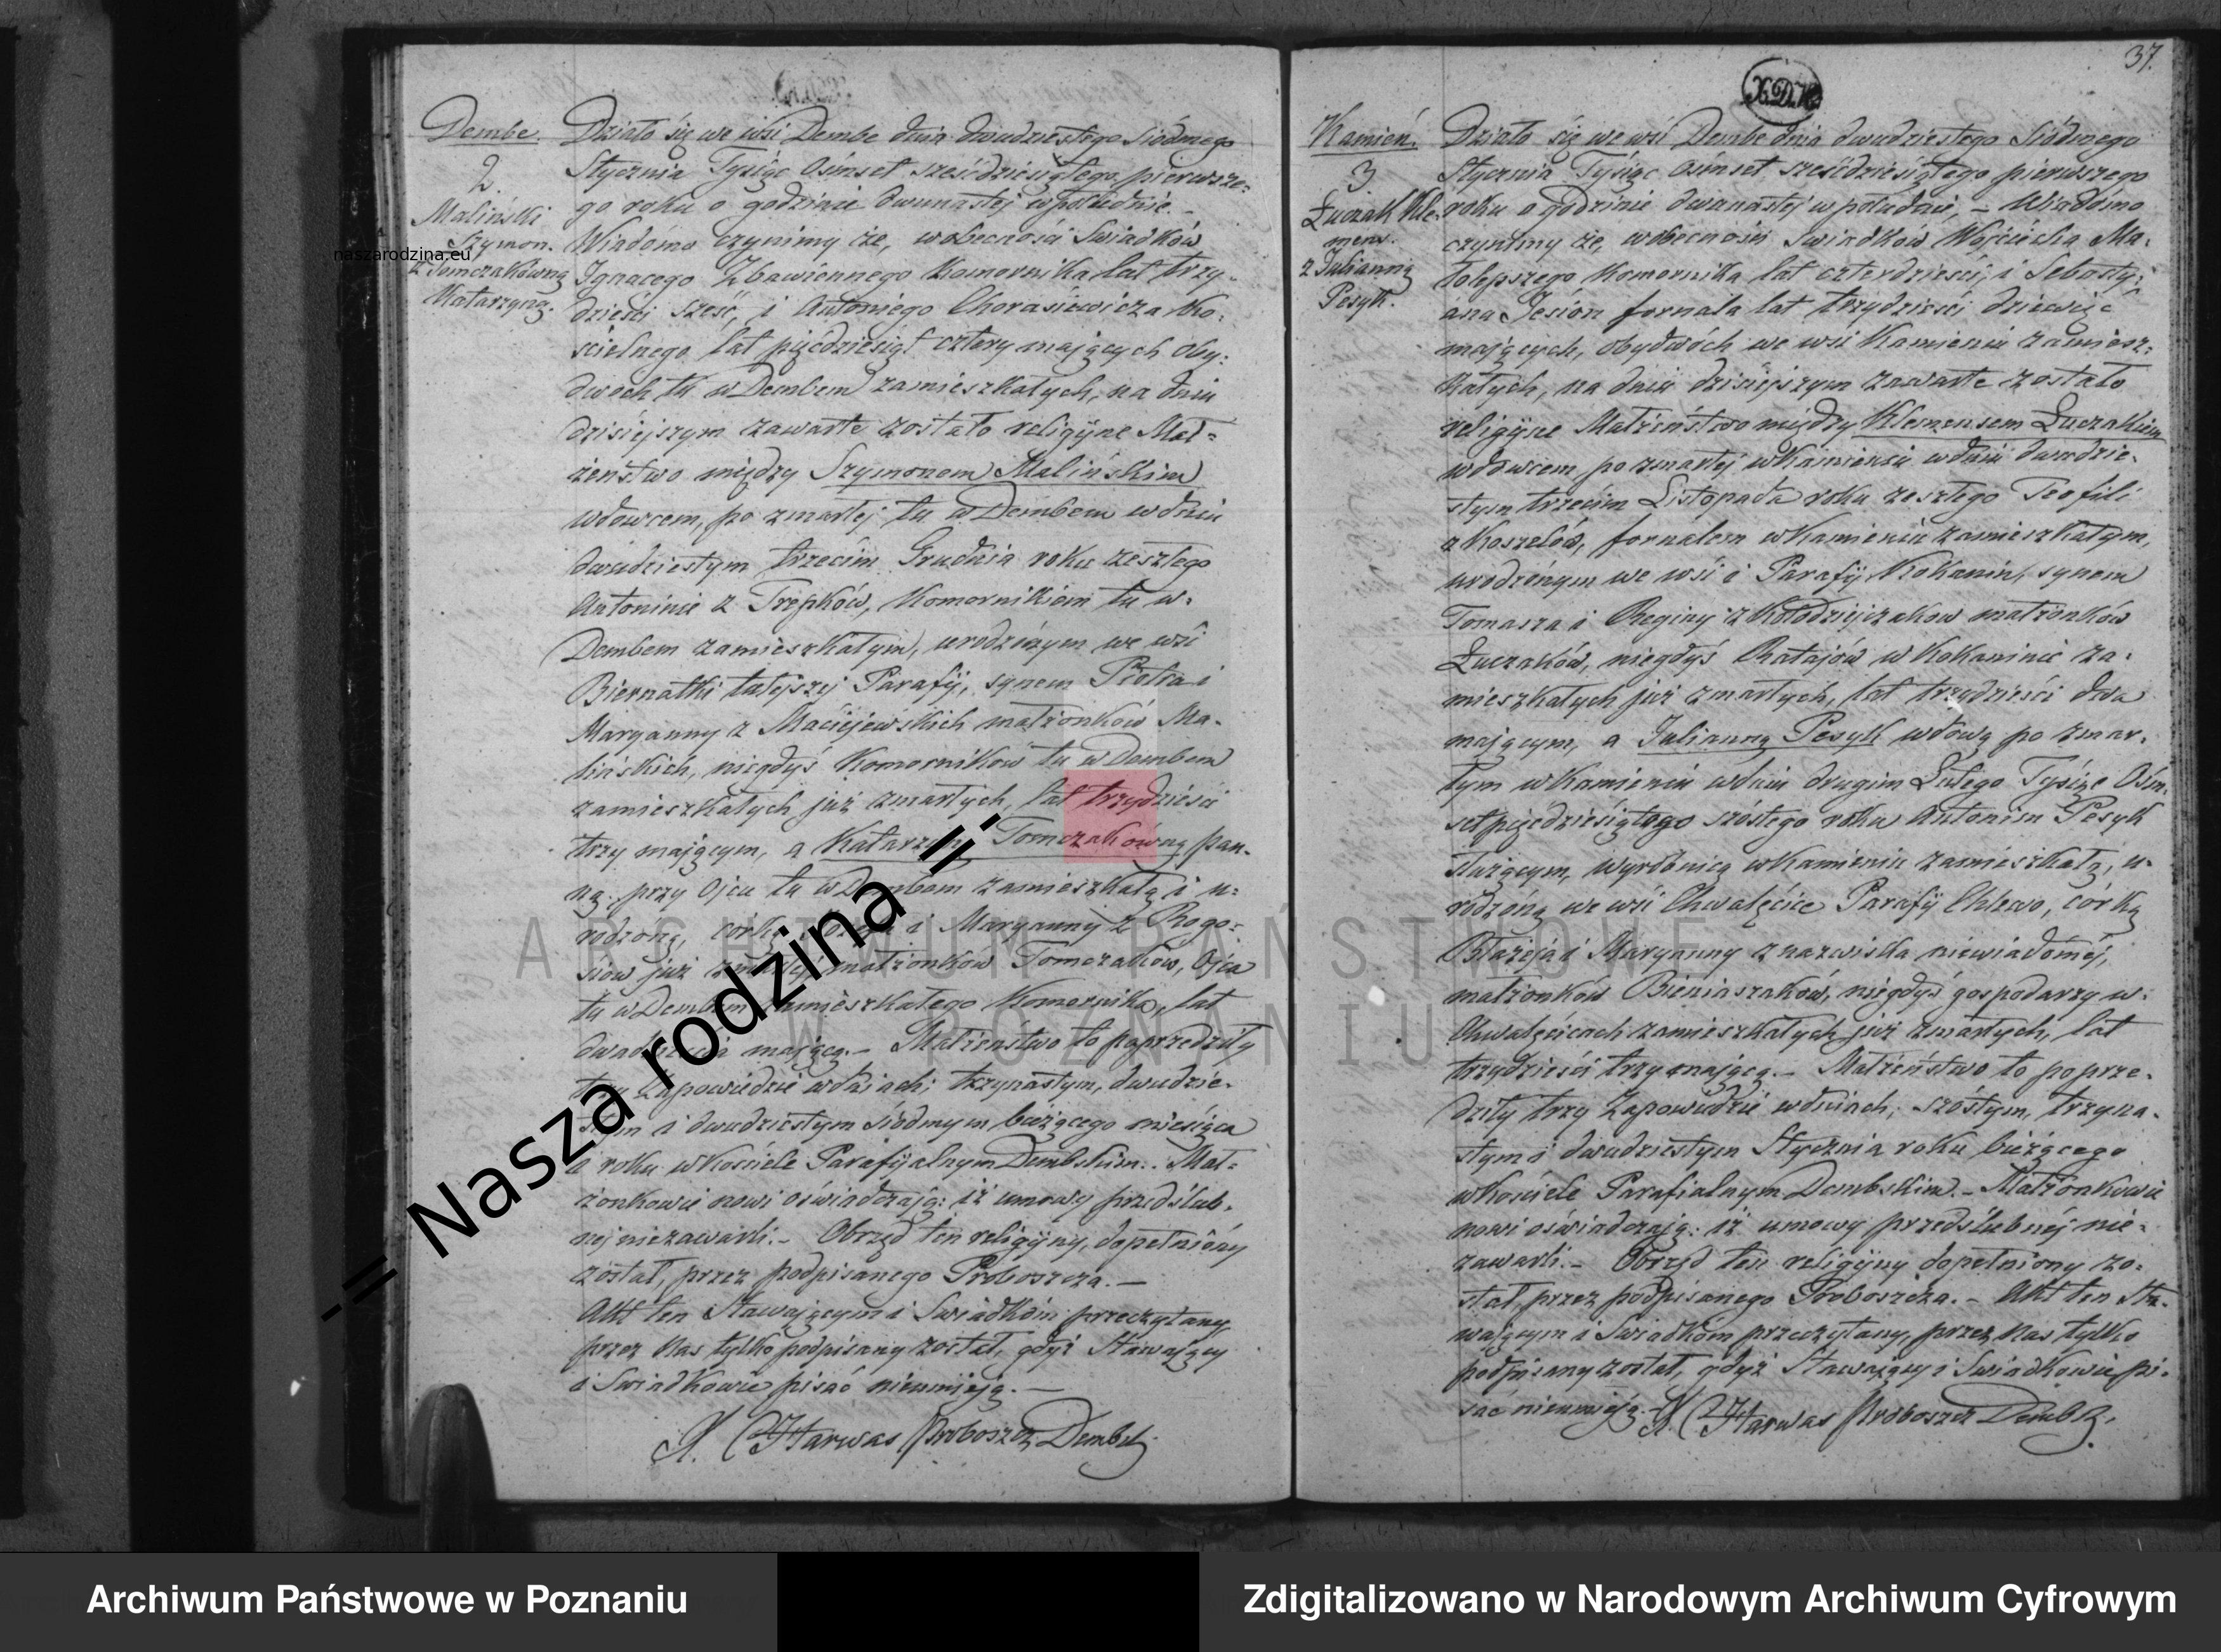 Dembe.
2.
Maliński
Szymon.
z Tomczakówną
Katarzyną.
naszarodzina.eu
Działo się we wsi Dembe dnia dwudziestego siódmego
Stycznia Tysiąc Ośmset sześćdziesiątego pierwsze-
go roku o godzinie dwunastej w południe. –
Wiadomo czynimy że, w obecności Swiadków
Ignacego Zbawiennego Komornika lat trzy-
dzieści sześć, i Antoniego Chorasiewicza Ko-
ścielnego lat pięćdziesiąt cztery mających oby-
dwoch tu w Dembem zamieszkałych, na dniu
dzisiejszym zawarte zostało religijne Mał-
żeństwo między Szymonem Malińskim
wdowcem, po zmarłej tu w Dembem w dniu
dwudziestym trzecim Grudnia roku zeszłego
Antoninie z Trepków, Komornikiem tu w-
Dembem zamieszkałym, urodzonym we wsi
Biernatki tutejszej Parafij, synem Piotra i
Maryanny z Maciejewskich małżonków Ma-
lińskich, niegdyś Komorników tu w Dembem
zamieszkałych już zmarłych, lat trzydzieści
trzy mającym, a Katarzyną Tomczakówną pan-
ną, przy Ojcu tu w Dembem zamieszkałą i u-
rodzoną, córką i Maryanny z Rogo-
siów już zmarłej małżonków Tomczaków, Ojca
tu w Dembem zamieszkałego Komornika, lat
dwadzieścia mającą. – Małżeństwo to poprzedziły
trzy Zapowiedzie w dniach: trzynastym, dwudzie-
stym i dwudziestym siódmym bieżącego miesiąca
i roku w Kościele Parafijalnym Dembskim. Mał-
żonkowie nowi oświadczają: iż umowy przedślub-
nej niezawarli. – Obrzęd ten religijny, dopełniony
został, przez podpisanego Proboszcza. –
Akt ten Stawającym i Swiadkóm przeczytany
przez Nas tylko podpisany został, gdyż Stawający
i Swiadkowie pisać nieumieją. –
X. Harwas Proboszcz Dembski
37.
X.D.K.
Kamień.
3.
Łuczak Kle-
mens.
z Julianną
Pesyk.
Działo się we wsi Dembe dnia dwudziestego Siódmego
Stycznia Tysiąc Ośmset sześćdziesiątego pierwszego
roku o godzinie dwunastej w południe, – Wiadomo
czynimy że, w obecności Swiadków Wojciecha Ma-
tolepszego Komornika lat czterdzieści, i Sebasty-
ana Jesion fornala lat trzydzieści dziewięć
mających, obydwóch we wsi Kamieniu zamiesz-
kałych, na dniu dzisiejszym zawarte zostało
religijne Małżeństwo między Klemensem Łuczakiem
wdowcem po zmarłej w Kamieniu w dniu dwudzie-
stym trzecim Listopada roku zeszłego Teofili
z Koszelów, fornalem w Kamieniu zamieszkałym,
urodzonym we wsi i Parafij Kokanin, synem
Tomasza i Reginy z Kołodziejczaków małżonków
Łuczaków, niegdyś Ratajów w Kokaninie za-
mieszkałych już zmarłych, lat trzydzieści dwa
mającym, a Julianną Pesyk wdową po zmar-
łym w Kamieniu w dniu drugim Lutego Tysiąc Ośm-
set pięćdziesiątego szóstego roku Antonim Pesyk
służącym, wyrobnicą w Kamieniu zamieszkałą, u-
rodzoną we wsi Chwalęcice Parafij Chlewo, córką
Błażeja i Maryanny z nazwiska niewiadomej,
małżonków Bieniaszaków, niegdyś gospodarzy w-
Chwalęcicach zamieszkałych już zmarłych, lat
trzydzieści trzy mającą. – Małżeństwo to poprze-
dziły trzy Zapowiedzie w dniach; szóstym, trzyna-
stym i dwudziestym Stycznia roku bieżącego
w Kościele Parafialnym Dembskim. – Małżonkowie
nowi oświadczają: iż umowy przedślubnej nie-
zawarli. – Obrzęd ten religijny dopełniony zo-
stał, przez podpisanego Proboszcza. – Akt ten Sta-
wającym i Swiadkóm przeczytany, przez Nas tylko
podpisany został, gdyż Stawający i Swiadkowie pi-
sać nieumieją. –
X. Harwas Proboszcz Dembski.
ARCHIWUM PAŃSTWOWE
W POZNANIU
-= Nasza rodzina =-
Archiwum Państwowe w Poznaniu
Zdigitalizowano w Narodowym Archiwum Cyfrowym